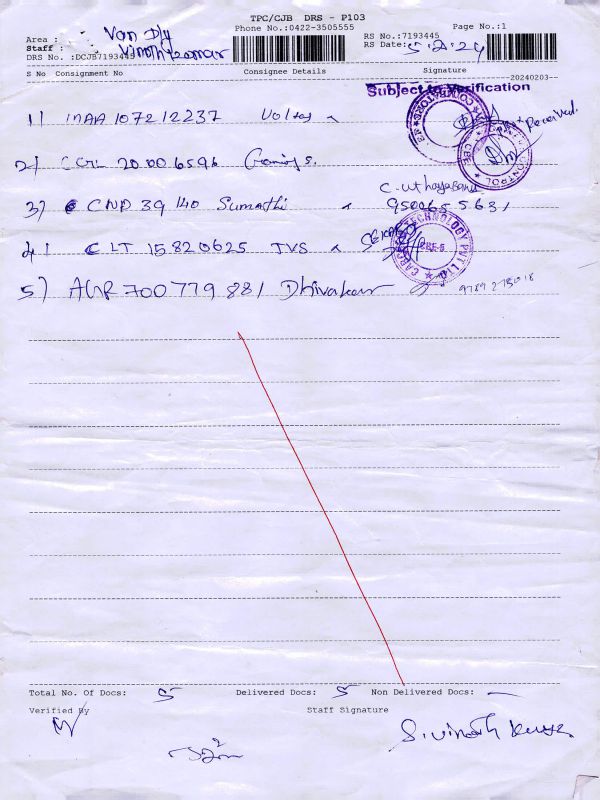 TPC/CJB DRS - P103
Phone No.:0422-3505555
Page No.:1
Area : Van Dly
Staff : Vinothkumar
RS No.:7193445
RS Date: 5.2.24
DRS No. :DCJB7193445
S No Consignment No Consignee Details Signature
20240203
Subject to Verification
1) MAA 107212237 Voltas
Received.
2) 20006596
C. uthayasana
3) CND 39140 Sumathi 9500655631
4) CLT 15820625 TVS
TECHNOLOGY PVT LTD
CBE-6
5) AUR 700779881 Dhivakar
Total No. Of Docs: 5 Delivered Docs: 5 Non Delivered Docs: —
Verified By Staff Signature
S. Vinoth Kumar